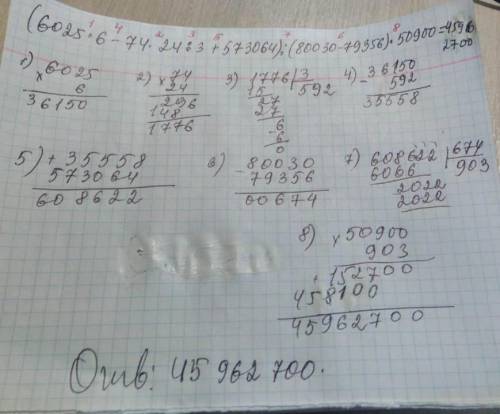 (6025·6-74·24:3+573064):(80030-79356)·50900=4596
2700
1) ×6025
6
36150
2) ×74
24
1296
148
1776
3) 1776 | 3
15 592
27
27
6
6
0
4) -36150
592
35558
5) +35558
573064
608622
6) -80030
79356
00674
7) 608622 | 674
6066 903
2022
2022
8) ×50900
903
152700
458100
45962700
Отв: 45 962 700.